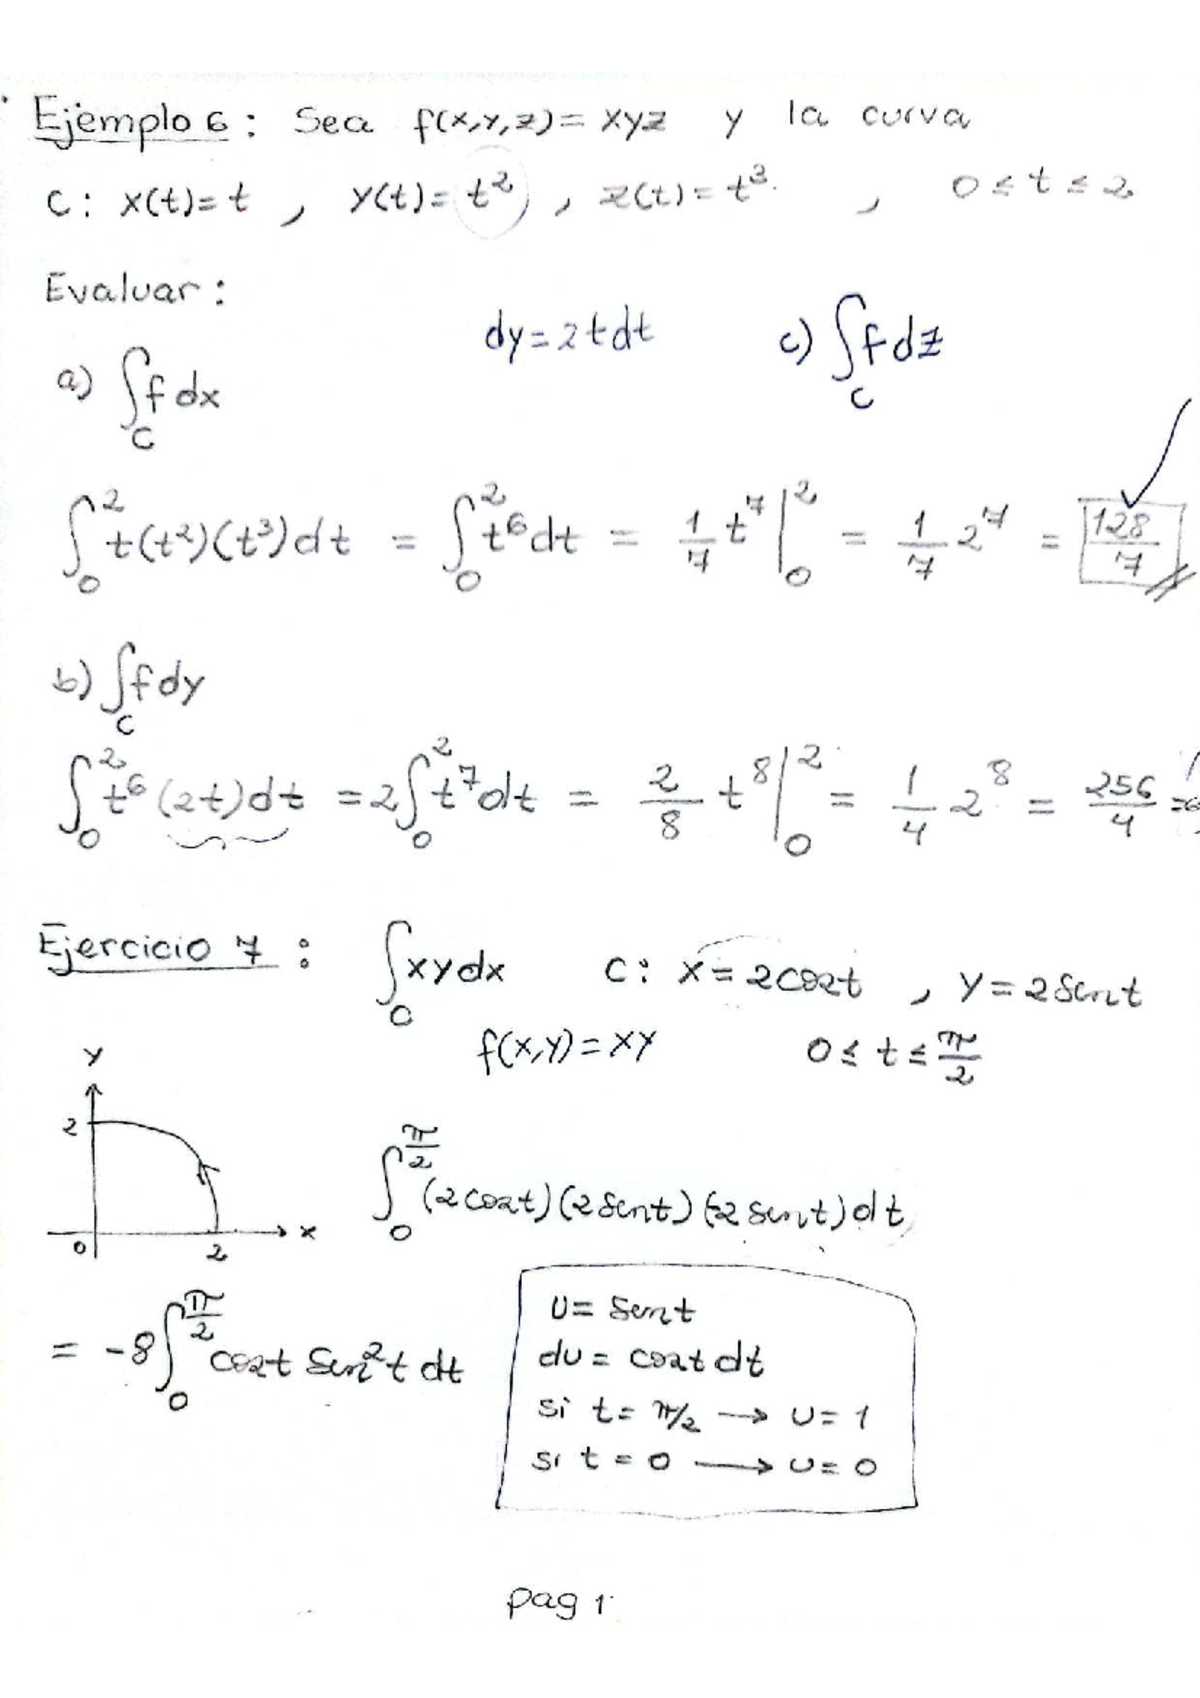 Ejemplo 6 : Sea f(x,y,z)= xyz y la curva
C : x(t)= t , y(t)= t² , z(t)= t³. , 0 ≤ t ≤ 2
Evaluar :
dy = 2t dt c) ∫_C f dz
a) ∫_C f dx
∫₀² t(t²)(t³)dt = ∫₀² t⁶ dt = 1/7 t⁷ |₀² = 1/7 2⁷ = 128/7
b) ∫_C f dy
∫₀² t⁶ (2t)dt = 2∫₀² t⁷ dt = 2/8 t⁸ |₀² = 1/4 2⁸ = 256/4 =
Ejercicio 7 : ∫_C xy dx C : x = 2cost , y = 2sent
f(x,y) = xy 0 ≤ t ≤ π/2
y
2
0 2 x
∫₀^{π/2} (2cost)(2sent)(-2sent)dt
= -8∫₀^{π/2} cost sen²t dt
u = sent
du = cost dt
si t = π/2 → u = 1
si t = 0 → u = 0
pag 1